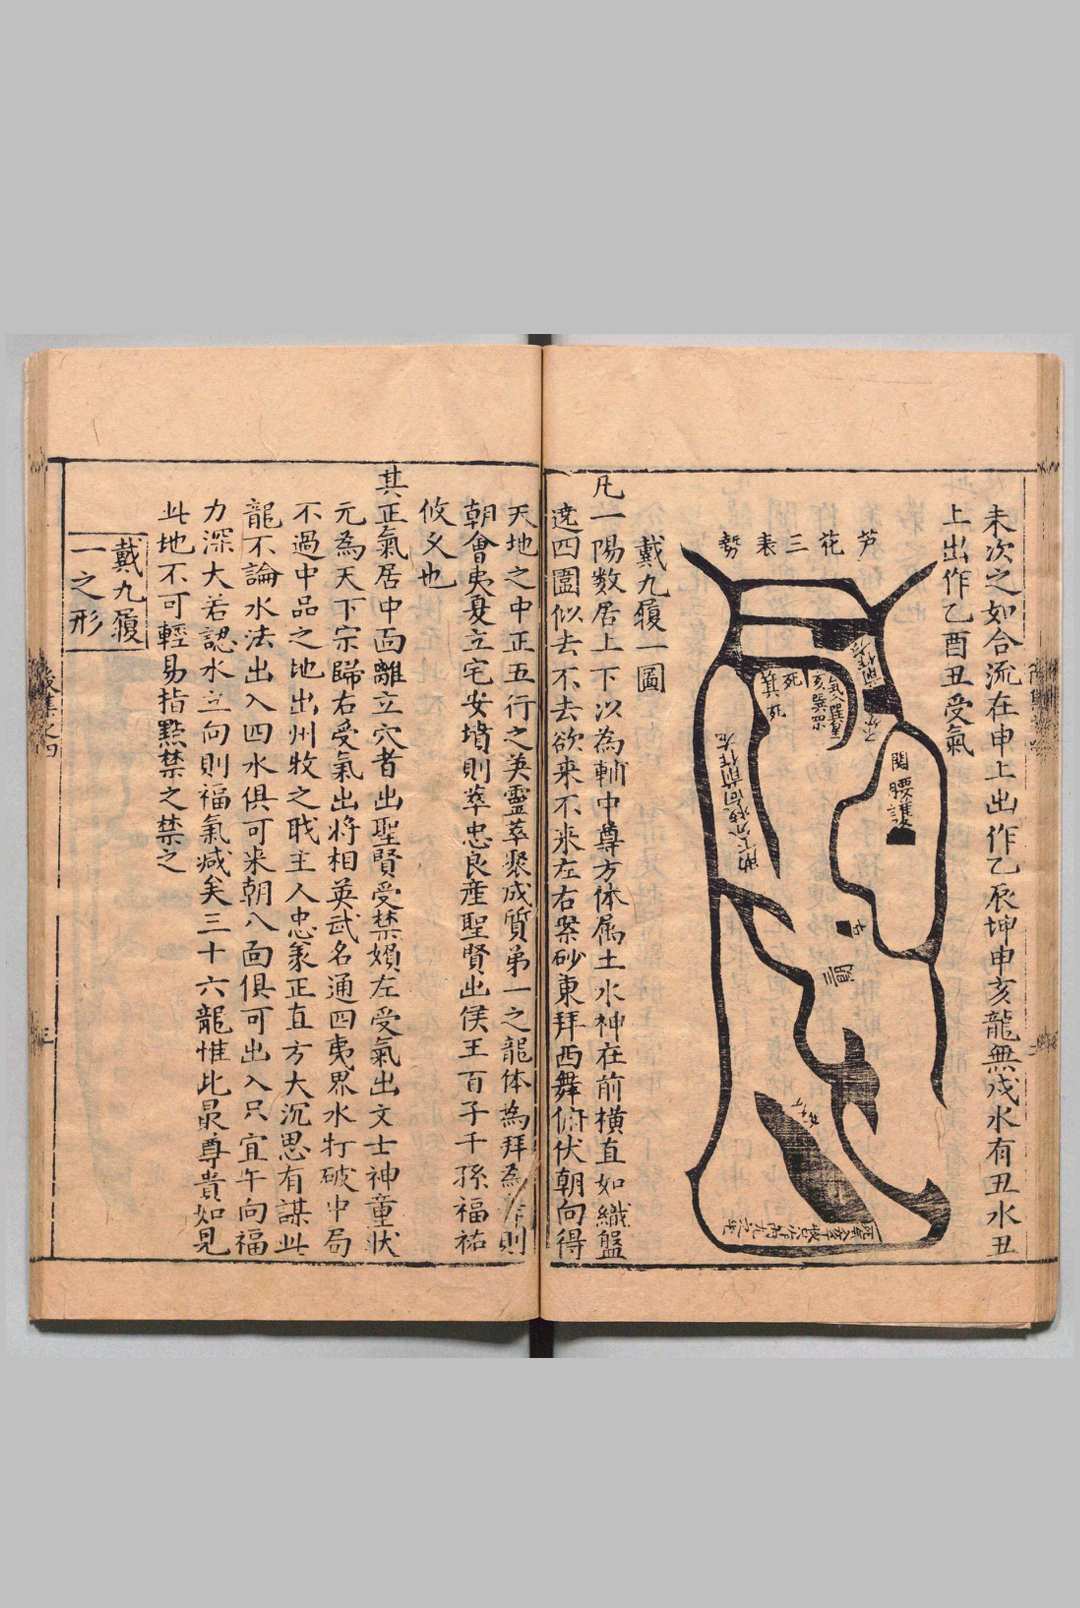 未次之如合流在申上出作乙辰坤申亥龍無戌水有丑水丑
上出作乙酉丑受氣
芦花三表势
関腰護
右
戴九履一圖
凡一陽数居上下以為輔中尊方体属土水神在前横直如織盤
遶四圍似去不去欲来不来左右案砂東拜西舞俯伏朝向得
天地之中正五行之英靈萃聚成質弟一之龍体為拜為
則
朝會夷夏立宅安墳則萃忠良産聖賢出侯王百子千孫福祐
攸乂也
其正氣居中面離立穴者出聖賢受禁嬪左受氣出文士神童状
元為天下宗歸右受氣出將相英武名通四夷界水打破中局
不過中品之地出州牧之戢主人忠彖正直方大沉思有謀此
龍不論水法出入四水俱可来朝八面俱可出入只宜午向福
力深大若認水立向則福氣减矣三十六龍惟此㝡尊貴如見
此地不可輕易指點禁之禁之
戴九履
一之形